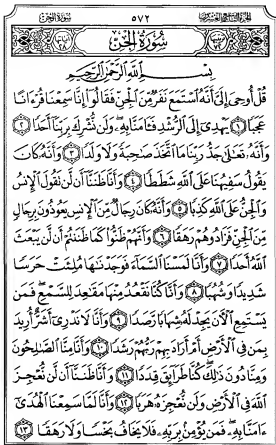 سُورَةُ الجِنِّ ٥٧٢ الجُزْءُ التَّاسِعُ وَالعِشْرُونَ
سُورَةُ الجِنِّ
بِسْمِ ٱللَّهِ ٱلرَّحْمَٰنِ ٱلرَّحِيمِ
قُلْ أُوحِىَ إِلَىَّ أَنَّهُ ٱسْتَمَعَ نَفَرٌ مِّنَ ٱلْجِنِّ فَقَالُوٓا۟ إِنَّا سَمِعْنَا قُرْءَانًا
عَجَبًا ۝١ يَهْدِىٓ إِلَى ٱلرُّشْدِ فَـَٔامَنَّا بِهِۦ وَلَن نُّشْرِكَ بِرَبِّنَآ أَحَدًا ۝٢
وَأَنَّهُۥ تَعَٰلَىٰ جَدُّ رَبِّنَا مَا ٱتَّخَذَ صَٰحِبَةً وَلَا وَلَدًا ۝٣ وَأَنَّهُۥ كَانَ
يَقُولُ سَفِيهُنَا عَلَى ٱللَّهِ شَطَطًا ۝٤ وَأَنَّا ظَنَنَّآ أَن لَّن تَقُولَ ٱلْإِنسُ
وَٱلْجِنُّ عَلَى ٱللَّهِ كَذِبًا ۝٥ وَأَنَّهُۥ كَانَ رِجَالٌ مِّنَ ٱلْإِنسِ يَعُوذُونَ بِرِجَالٍ
مِّنَ ٱلْجِنِّ فَزَادُوهُمْ رَهَقًا ۝٦ وَأَنَّهُمْ ظَنُّوا۟ كَمَا ظَنَنتُمْ أَن لَّن يَبْعَثَ
ٱللَّهُ أَحَدًا ۝٧ وَأَنَّا لَمَسْنَا ٱلسَّمَآءَ فَوَجَدْنَٰهَا مُلِئَتْ حَرَسًا
شَدِيدًا وَشُهُبًا ۝٨ وَأَنَّا كُنَّا نَقْعُدُ مِنْهَا مَقَٰعِدَ لِلسَّمْعِ فَمَن
يَسْتَمِعِ ٱلْـَٔانَ يَجِدْ لَهُۥ شِهَابًا رَّصَدًا ۝٩ وَأَنَّا لَا نَدْرِىٓ أَشَرٌّ أُرِيدَ
بِمَن فِى ٱلْأَرْضِ أَمْ أَرَادَ بِهِمْ رَبُّهُمْ رَشَدًا ۝١٠ وَأَنَّا مِنَّا ٱلصَّٰلِحُونَ
وَمِنَّا دُونَ ذَٰلِكَ كُنَّا طَرَآئِقَ قِدَدًا ۝١١ وَأَنَّا ظَنَنَّآ أَن لَّن نُّعْجِزَ
ٱللَّهَ فِى ٱلْأَرْضِ وَلَن نُّعْجِزَهُۥ هَرَبًا ۝١٢ وَأَنَّا لَمَّا سَمِعْنَا ٱلْهُدَىٰٓ
ءَامَنَّا بِهِۦ فَمَن يُؤْمِنۢ بِرَبِّهِۦ فَلَا يَخَافُ بَخْسًا وَلَا رَهَقًا ۝١٣